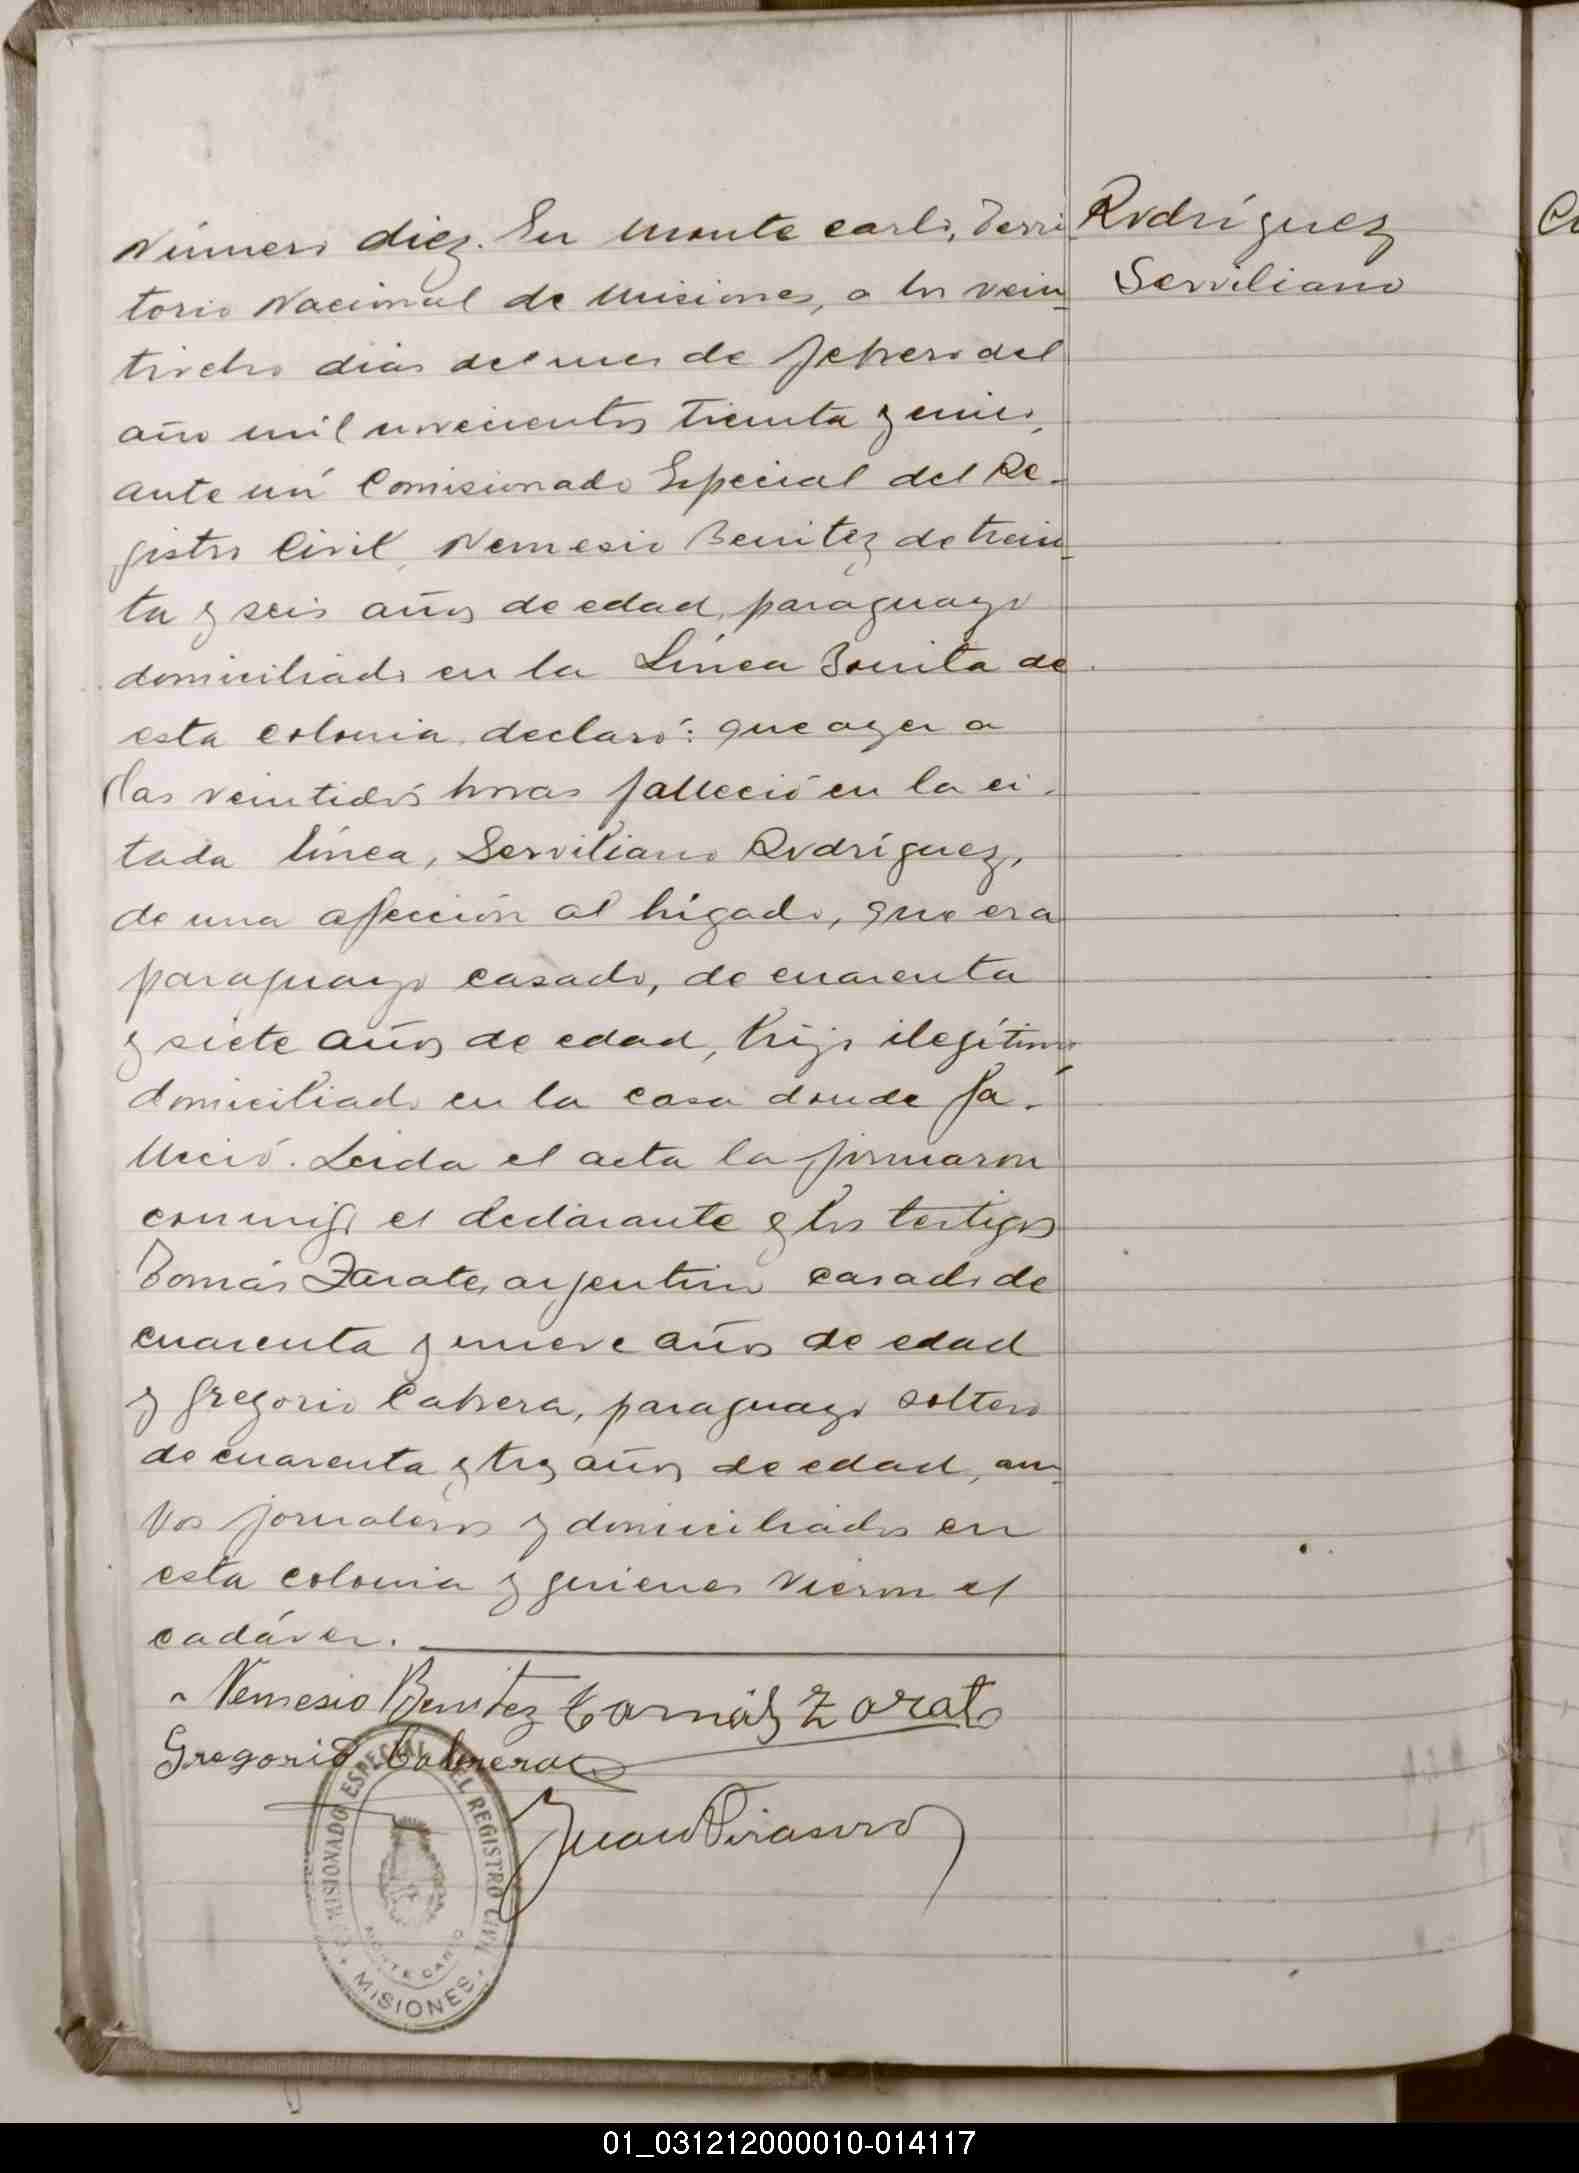 Número diez. En Monte Carlo, Terri
torio Nacional de Misiones, a los vein
tiocho dias del mes de febrero del
año mil novecientos treinta y uno,
ante mí Comisionado Especial del Re-
gistro Civil, Nemesio Benitez de trein
ta y seis años de edad, paraguayo
domiciliado en la Línea Bonita de
esta colonia, declaró: que ayer a
las veintidós horas falleció en la ci-
tada línea, Serviliano Rodríguez,
de una afección al hígado, que era
paraguayo casado, de cuarenta
y siete años de edad, hijo ilegítimo,
domiciliado en la casa donde fa-
lleció. Leida el acta la firmaron
conmigo el declarante y los testigos
Tomás Zarate, argentino casado de
cuarenta y nueve años de edad
y Gregorio Cabrera, paraguayo soltero
de cuarenta y tres años de edad, am
bos jornaleros y domiciliados en
esta colonia y quienes vieron el
cadáver.
Nemesio Benitez Tomás Zarate
Gregorio Cabrera
Juan
COMISIONADO ESPECIAL DEL REGISTRO CIVIL
MONTE CARLO
MISIONES
Rodríguez
Serviliano
01_031212000010-014117